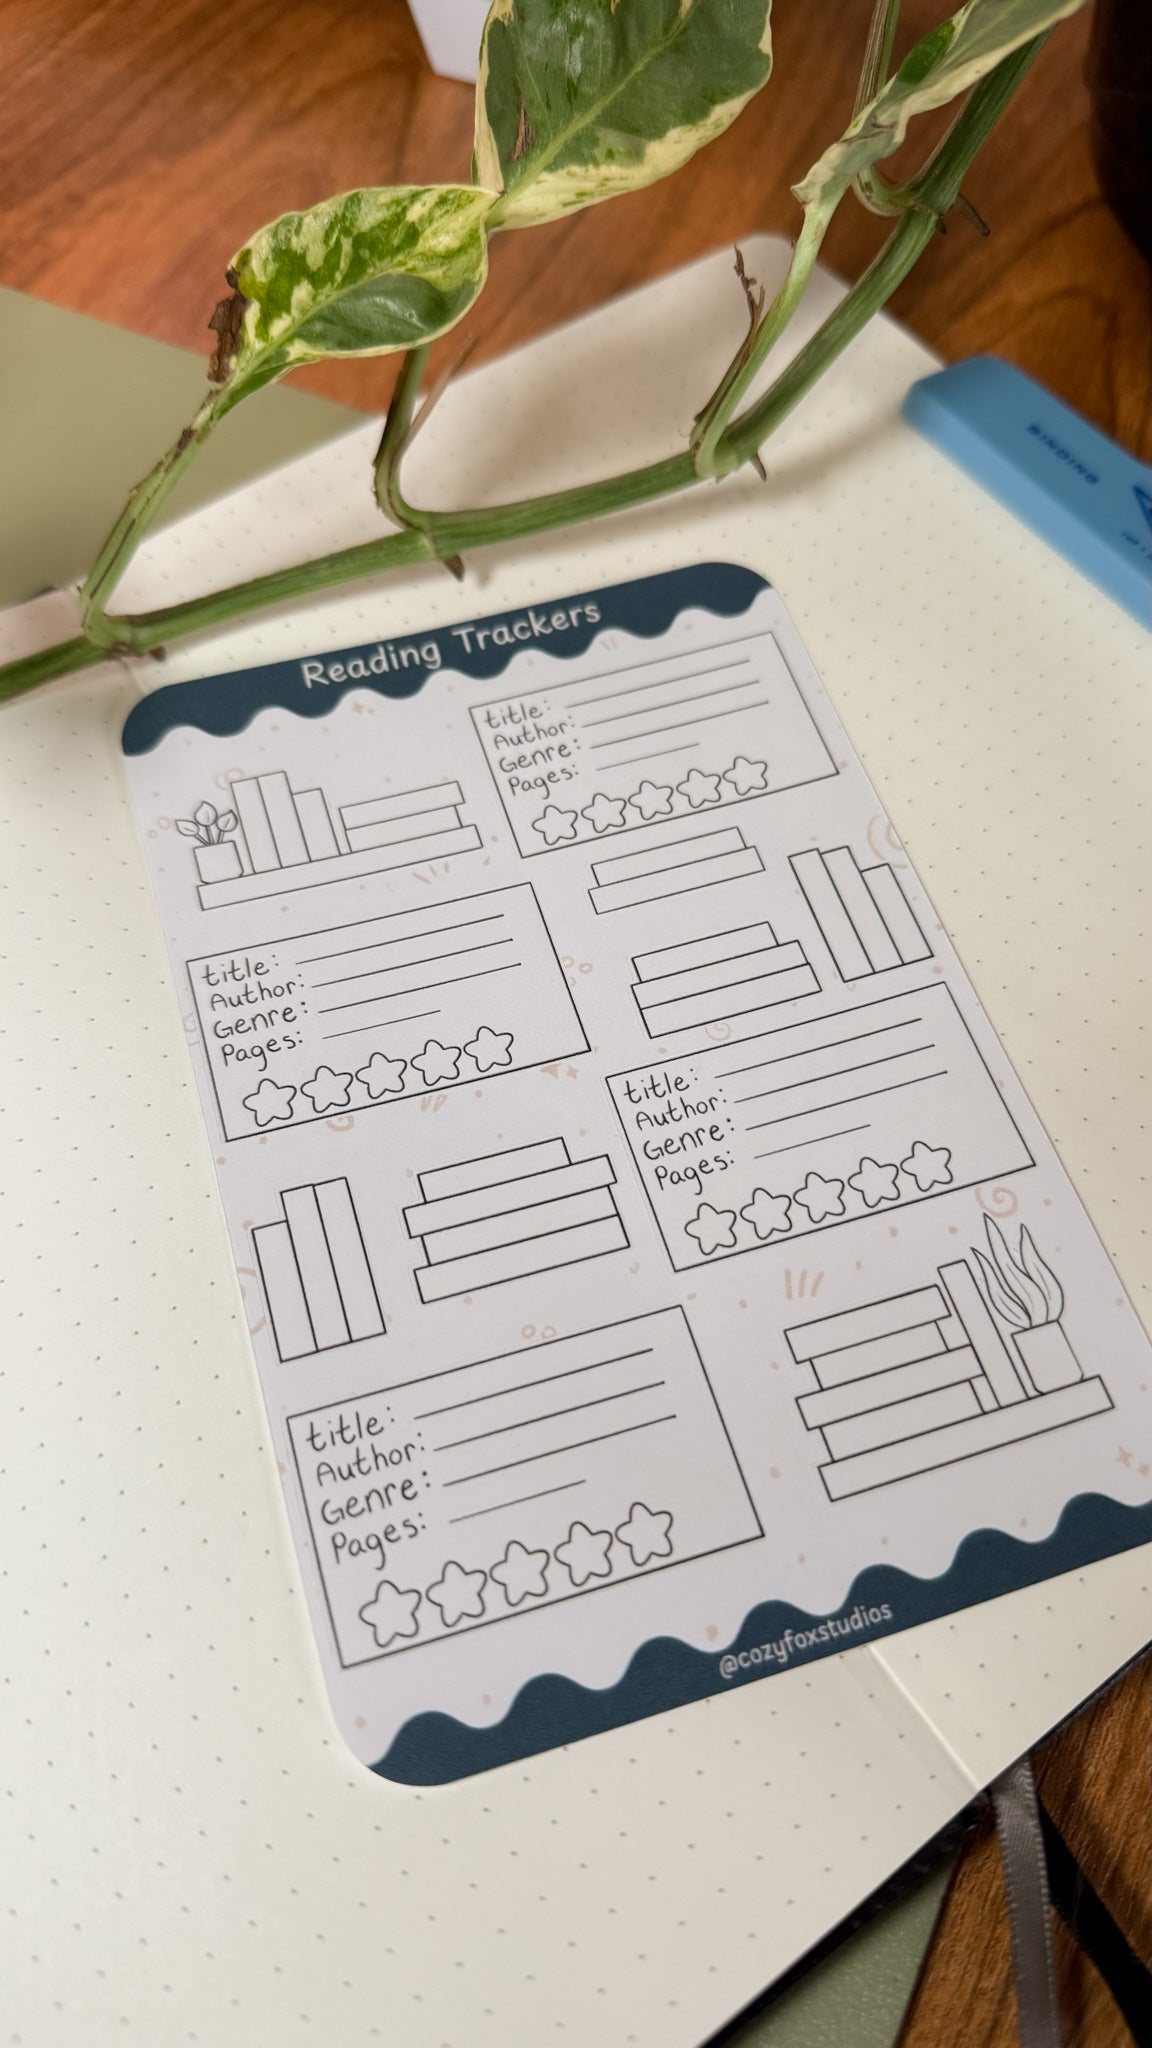 BINDING
Reading Trackers
title:
Author:
Genre:
Pages:
title:
Author:
Genre:
Pages:
title:
Author:
Genre:
Pages:
title:
Author:
Genre:
Pages:
@cozyfoxstudios